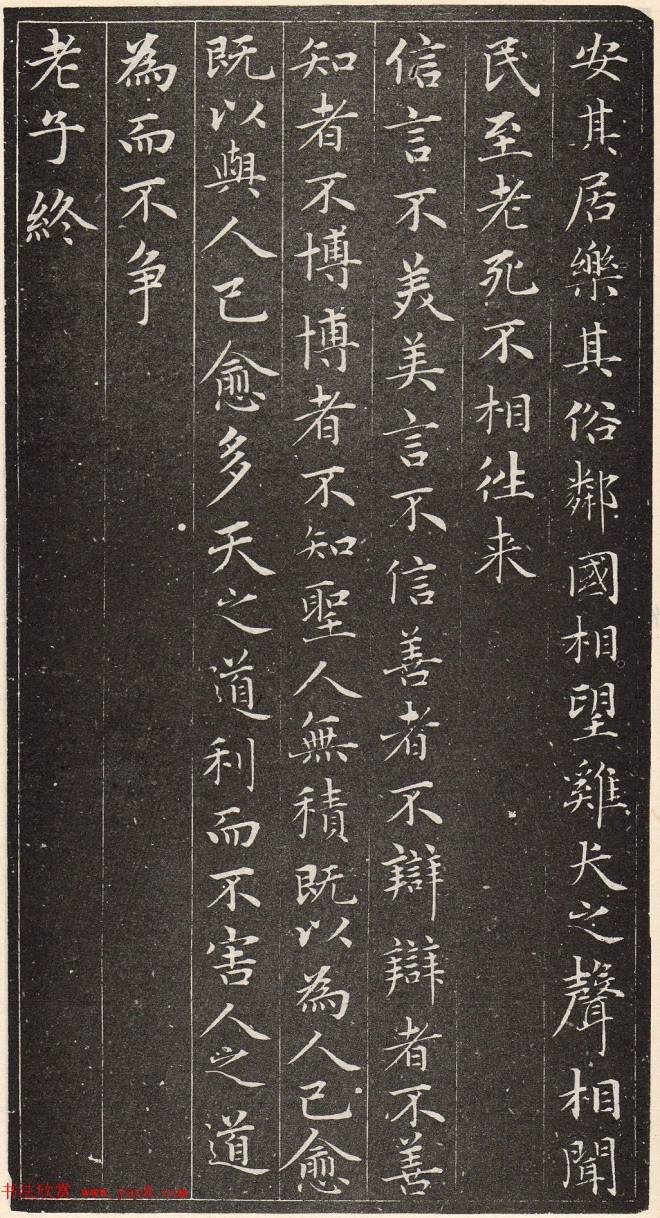 安其居樂其俗鄰國相望雞犬之聲相聞
民至老死不相往来
信言不美美言不信善者不辯辯者不善
知者不博博者不知聖人無積既以為人已愈
既以與人已愈多天之道利而不害人之道
為而不争
老子終
书法欣赏 www.yac8.com